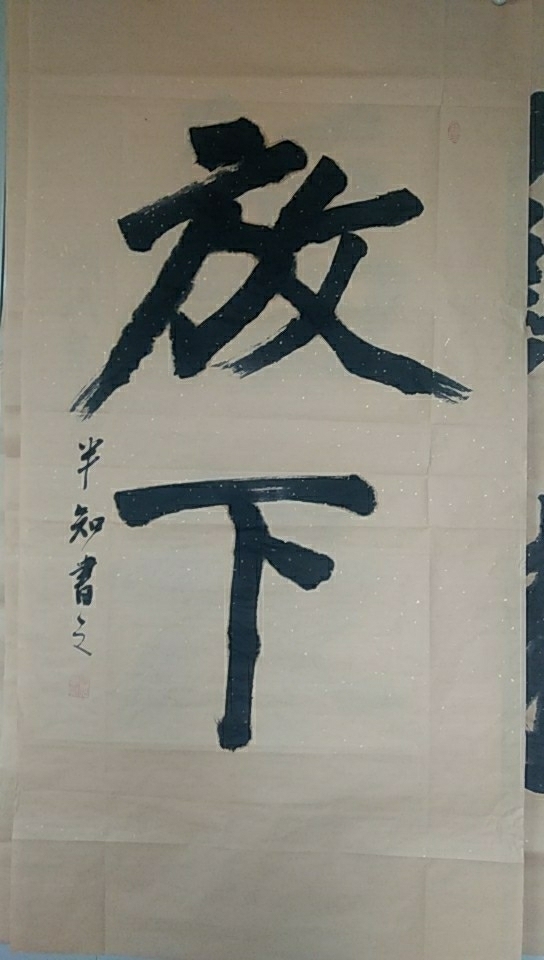 放下
半知書之